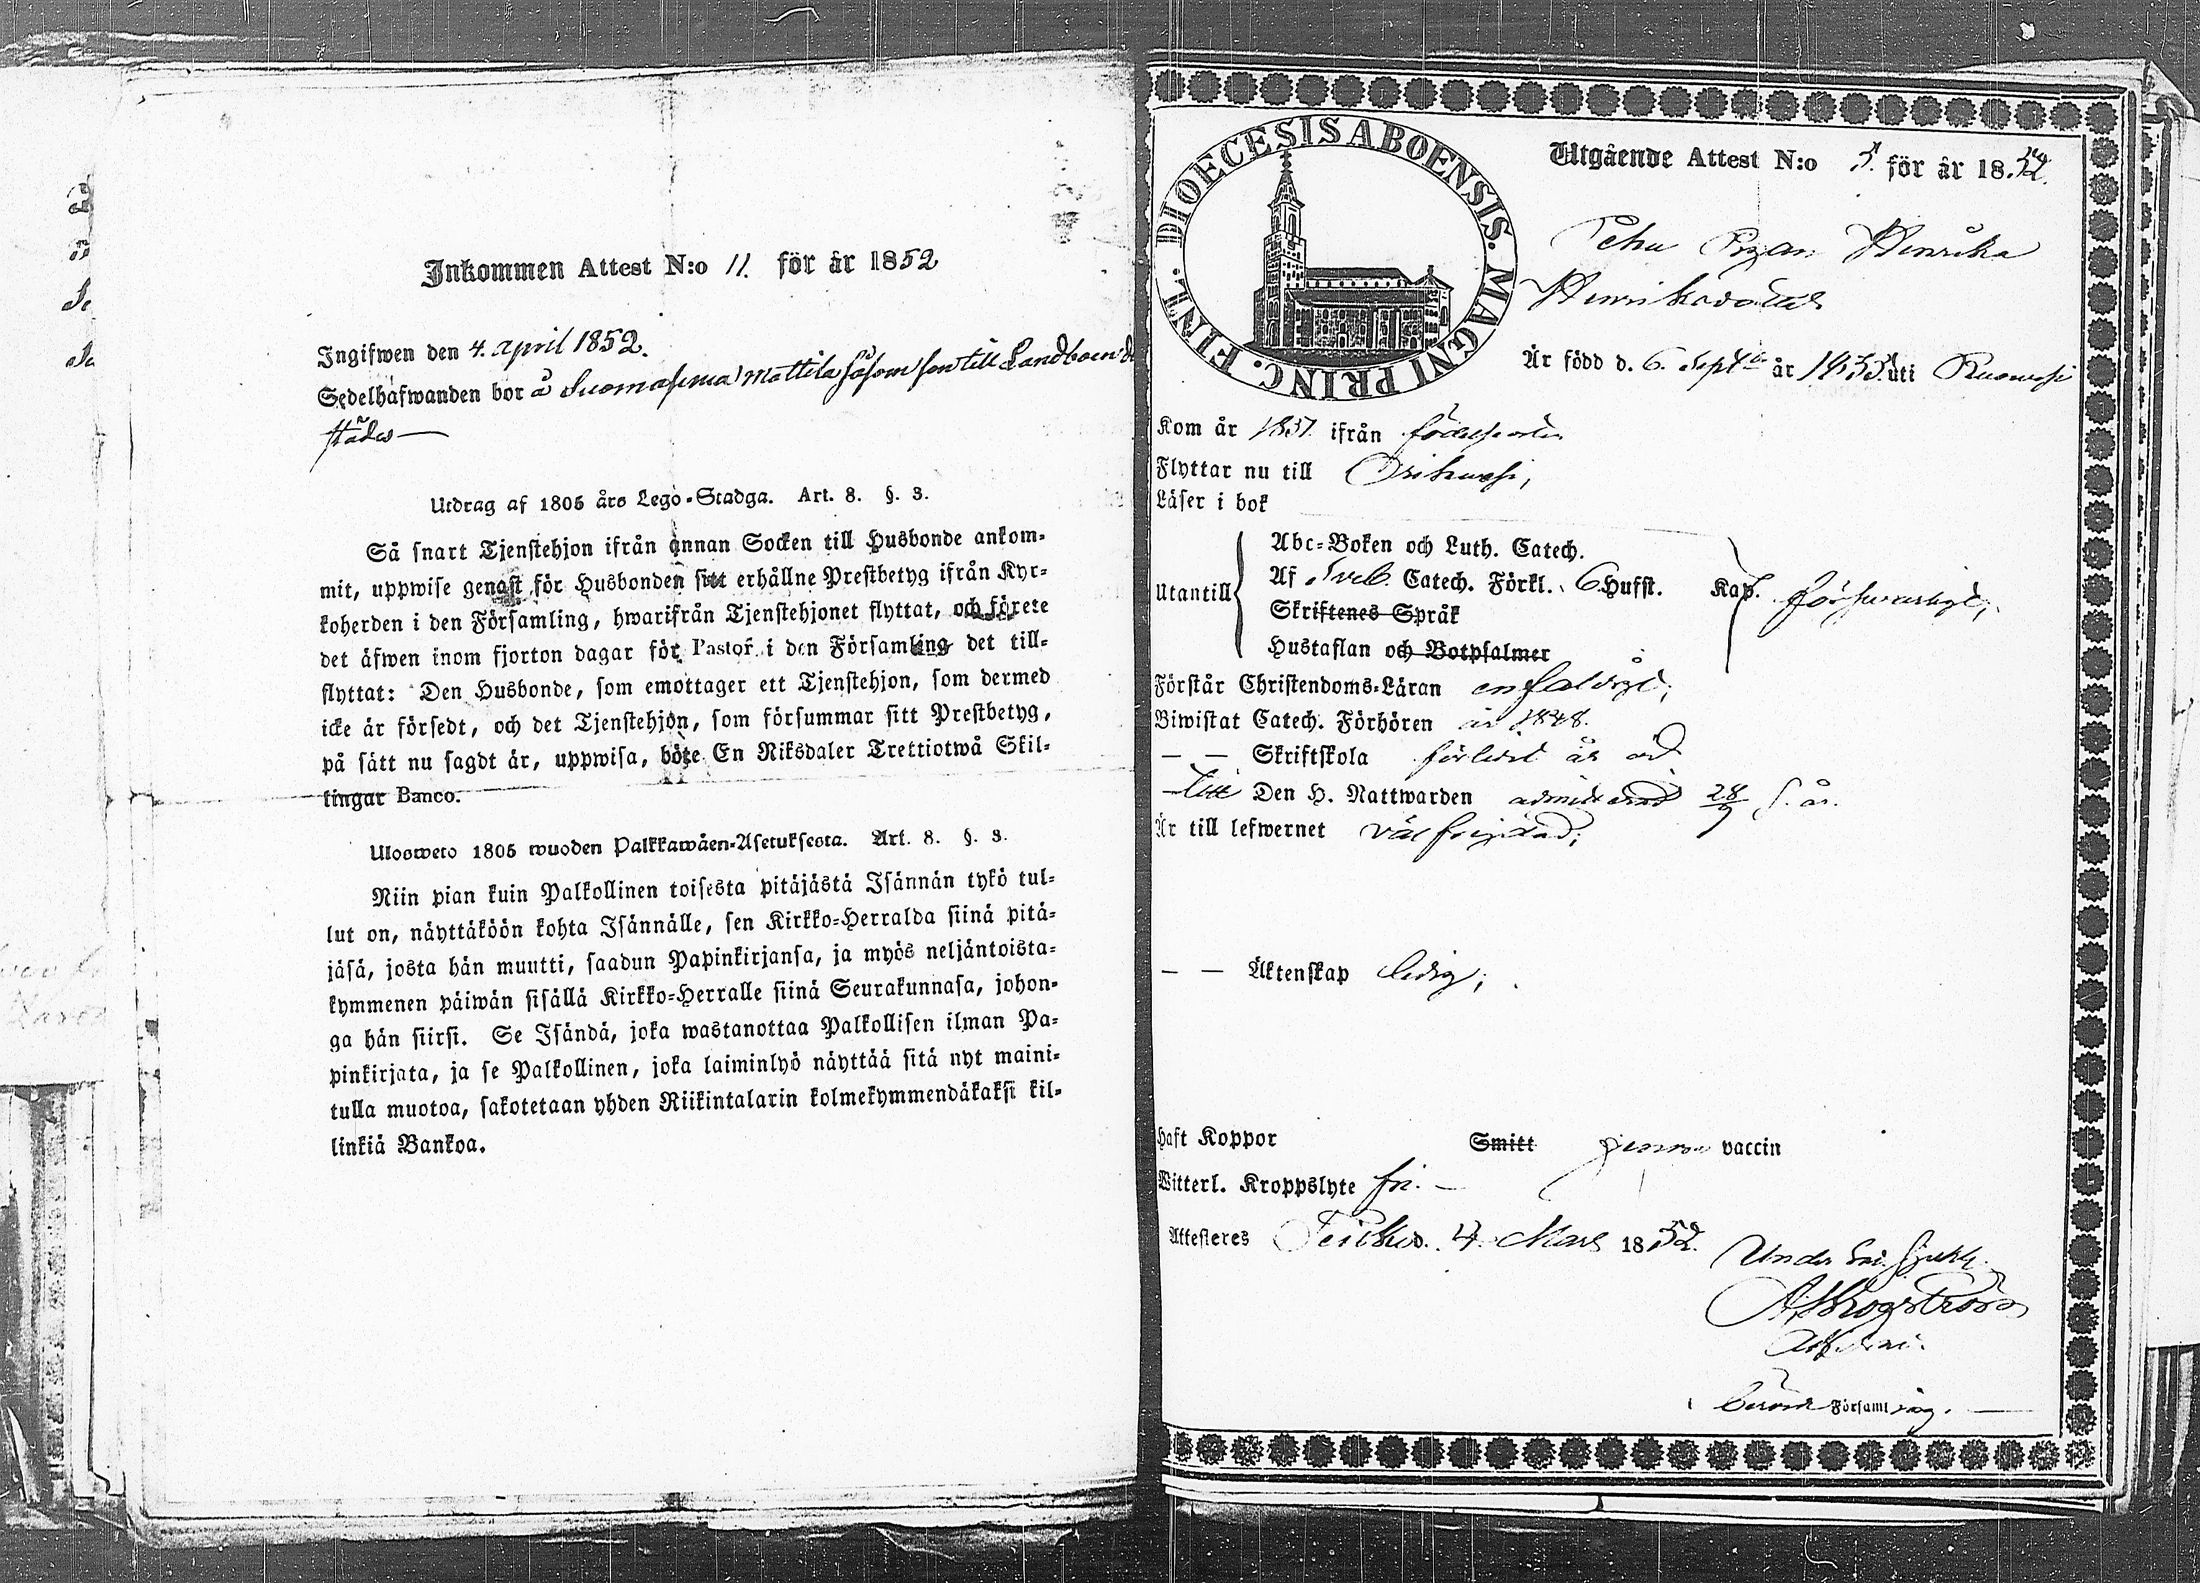 Inkommen Attest N:o 11. för år 1852
Ingifwen den 4. april 1852.
Sedelhafwanden bor å Suomasema Mattila såsom son till Landboen d
städes
Utdrag af 1805 års Lego-Stadga. Art. 8. §. 3.
Så snart Tjenstehjon ifrån annan Socken till Husbonde ankom-
mit, uppwise genast för Husbonden sitt erhållne Prestbetyg ifrån Kyr-
koherden i den Församling, hwarifrån Tjenstehjonet flyttat, och förete
det äfwen inom fjorton dagar för Pastor i den Församling det till-
flyttat: Den Husbonde, som emottager ett Tjenstehjon, som dermed
icke är försedt, och det Tjenstehjon, som försummar sitt Prestbetyg,
på sätt nu sagdt är, uppwisa, böte En Riksdaler Trettiotwå Skil-
lingar Banco.
Ulosweto 1805 wuoden Palkkawäen-Asetuksesta. Art. 8. §. 3.
Niin pian kuin Palkollinen toisesta pitäjästä Isännän tykö tul-
lut on, näyttäköön kohta Isännälle, sen Kirkko-Herralda siinä pitä-
jäsä, josta hän muutti, saadun Papinkirjansa, ja myös neljäntoista-
kymmenen päiwän sisällä Kirkko-Herralle siinä Seurakunnasa, johon-
ga hän siirsi. Se Isändä, joka wastanottaa Palkollisen ilman Pa-
pinkirjata, ja se Palkollinen, joka laiminlyö näyttää sitä nyt maini-
tulla muotoa, sakotetaan yhden Riikintalarin kolmekymmendäkaksi kil-
linkiä Bankoa.
DIOECESIS ABOENSIS. MAGNI PRINC. FINL.
Utgående Attest N:o 5. för år 1852.
Pehu Pigan Henrika
Henriksdotter
Är född d. 6. Sept. år 1833. uti Ruowesi
Kom år 1851 ifrån födelseorten
Flyttar nu till Orihwesi,
Läser i bok
Abc-Boken och Luth. Catech.
Utantill Af Sveb. Catech. Förkl. 6 Hufst. Kap. försvarligt,
Skriftenes Språk
Hustaflan och Botpsalmer
Förstår Christendoms-Läran enfaldigt,
Biwistat Catech. Förhören år 1848.
— — Skriftskola förledet år och
till Den H. Nattwarden admitterad 28/9 s. år.
Är till lefwernet väl frejdad;
— — Äktenskap ledig;
Haft Koppor Smitt genom vaccin
Witterl. Kroppslyte fri.
Attesteras Teisko d. 4. Mars 1852.
Under
A. Skogström
Församling.